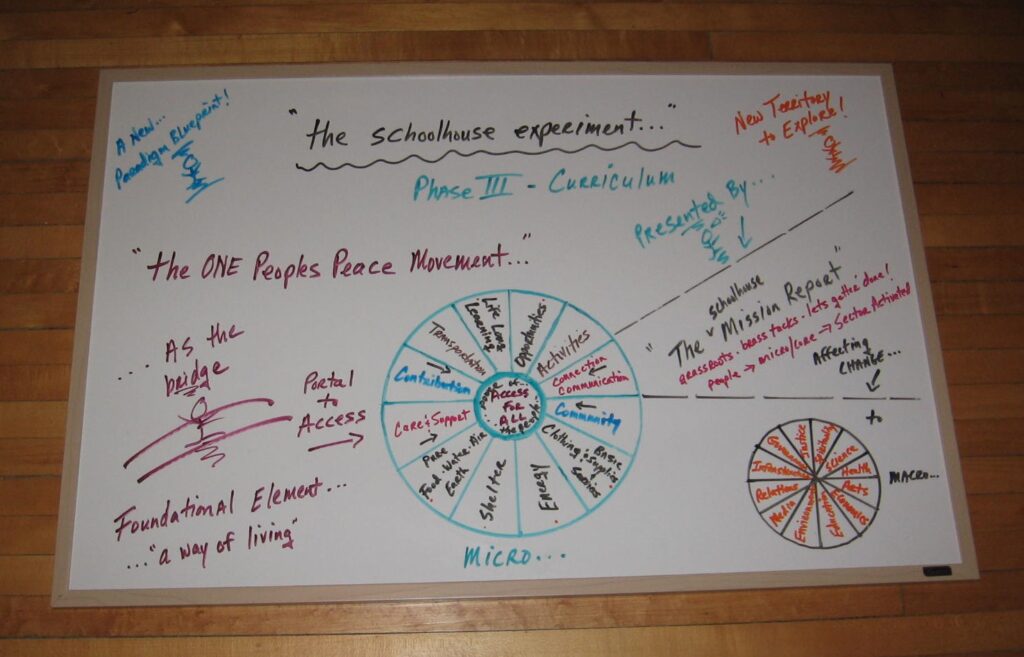 A New...
Paradigm Blueprint!
"the schoolhouse experiment..."
New Territory
to Explore!
Phase III - Curriculum
Presented By...
"the ONE Peoples Peace Movement..."
"The schoolhouse Mission Report"
Grassroots - brass tacks - lets gotter done!
people → micro/core → Sector Activated
Affecting
CHANGE...
to
... As the
bridge
Portal
to
Access
Foundational Element...
..."a way of living"
Life Long
Learning
Opportunities
Activities
Connection
Communication
Community
Basic
Clothing & Supplies
Services
Energy
Shelter
Pure
Food. Water. Air
Earth
Care & Support
Contribution
Transportation
ACCESS
FOR
ALL
the people...
MICRO...
Justice
Spirituality
Science
Health
Arts
Economics
Education
Environment
Media
Relations
Infrastructure
Governance
MACRO...